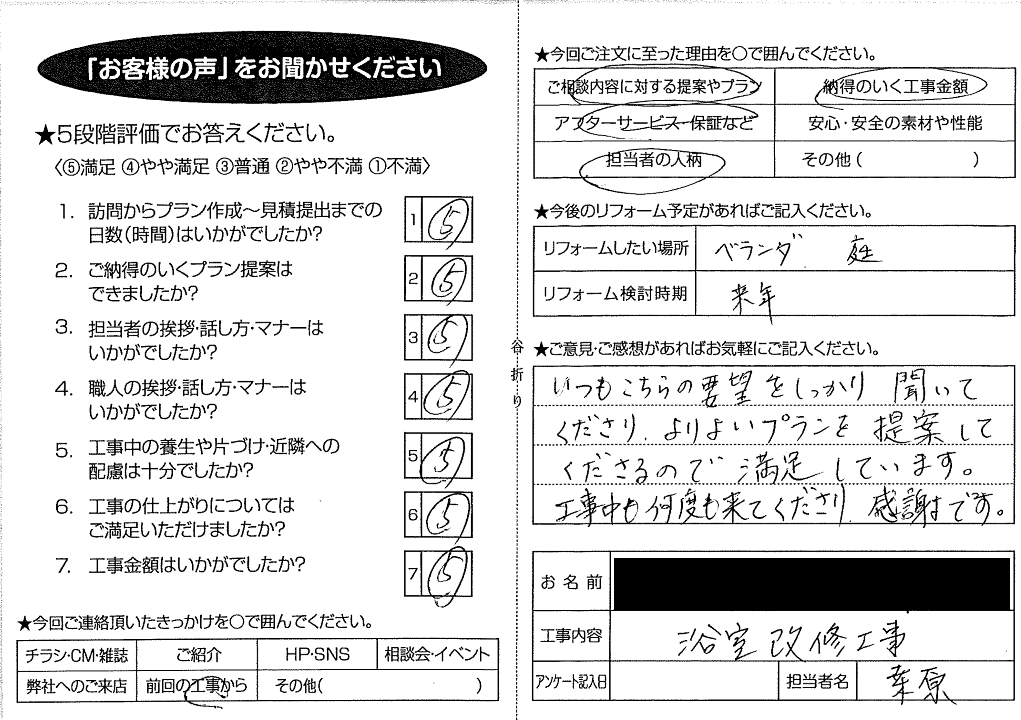 「お客様の声」をお聞かせください
★5段階評価でお答えください。
〈⑤満足 ④やや満足 ③普通 ②やや不満 ①不満〉
1. 訪問からプラン作成～見積提出までの
日数(時間)はいかがでしたか?
1 5
2. ご納得のいくプラン提案は
できましたか?
2 5
3. 担当者の挨拶・話し方・マナーは
いかがでしたか?
3 5
4. 職人の挨拶・話し方・マナーは
いかがでしたか?
4 5
5. 工事中の養生や片づけ・近隣への
配慮は十分でしたか?
5 5
6. 工事の仕上がりについては
ご満足いただけましたか?
6 5
7. 工事金額はいかがでしたか?
7 5
★今回ご連絡頂いたきっかけを○で囲んでください。
チラシ・CM・雑誌 ご紹介 HP・SNS 相談会・イベント
弊社へのご来店 前回の工事から その他( )
谷折り
★今回ご注文に至った理由を○で囲んでください。
ご相談内容に対する提案やプラン 納得のいく工事金額
アフターサービス・保証など 安心・安全の素材や性能
担当者の人柄 その他( )
★今後のリフォーム予定があればご記入ください。
リフォームしたい場所 ベランダ 庭
リフォーム検討時期 来年
★ご意見・ご感想があればお気軽にご記入ください。
いつもこちらの要望をしっかり聞いて
くださり、よりよいプランを提案して
くださるので満足しています。
工事中も何度も来てくださり、感謝です。
お名前
工事内容 浴室改修工事
アンケート記入日 担当者名 栗原